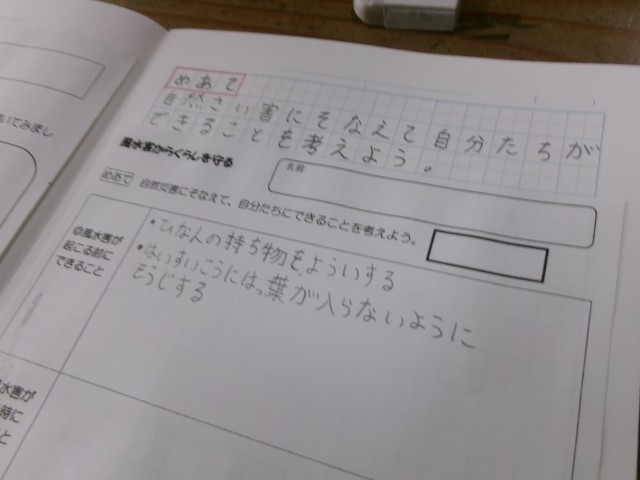 めあて
自然さい害にそなえて自分たちが
できることを考えよう。
風水害からくらしを守る
名前
めあて 自然災害にそなえて、自分たちにできることを考えよう。
◎風水害が
起こる前に
できること
・ひなん の持ち物をよういする
・はいすいこうには、葉が入らないように
そうじする
いてみまし
水害が
時に
と